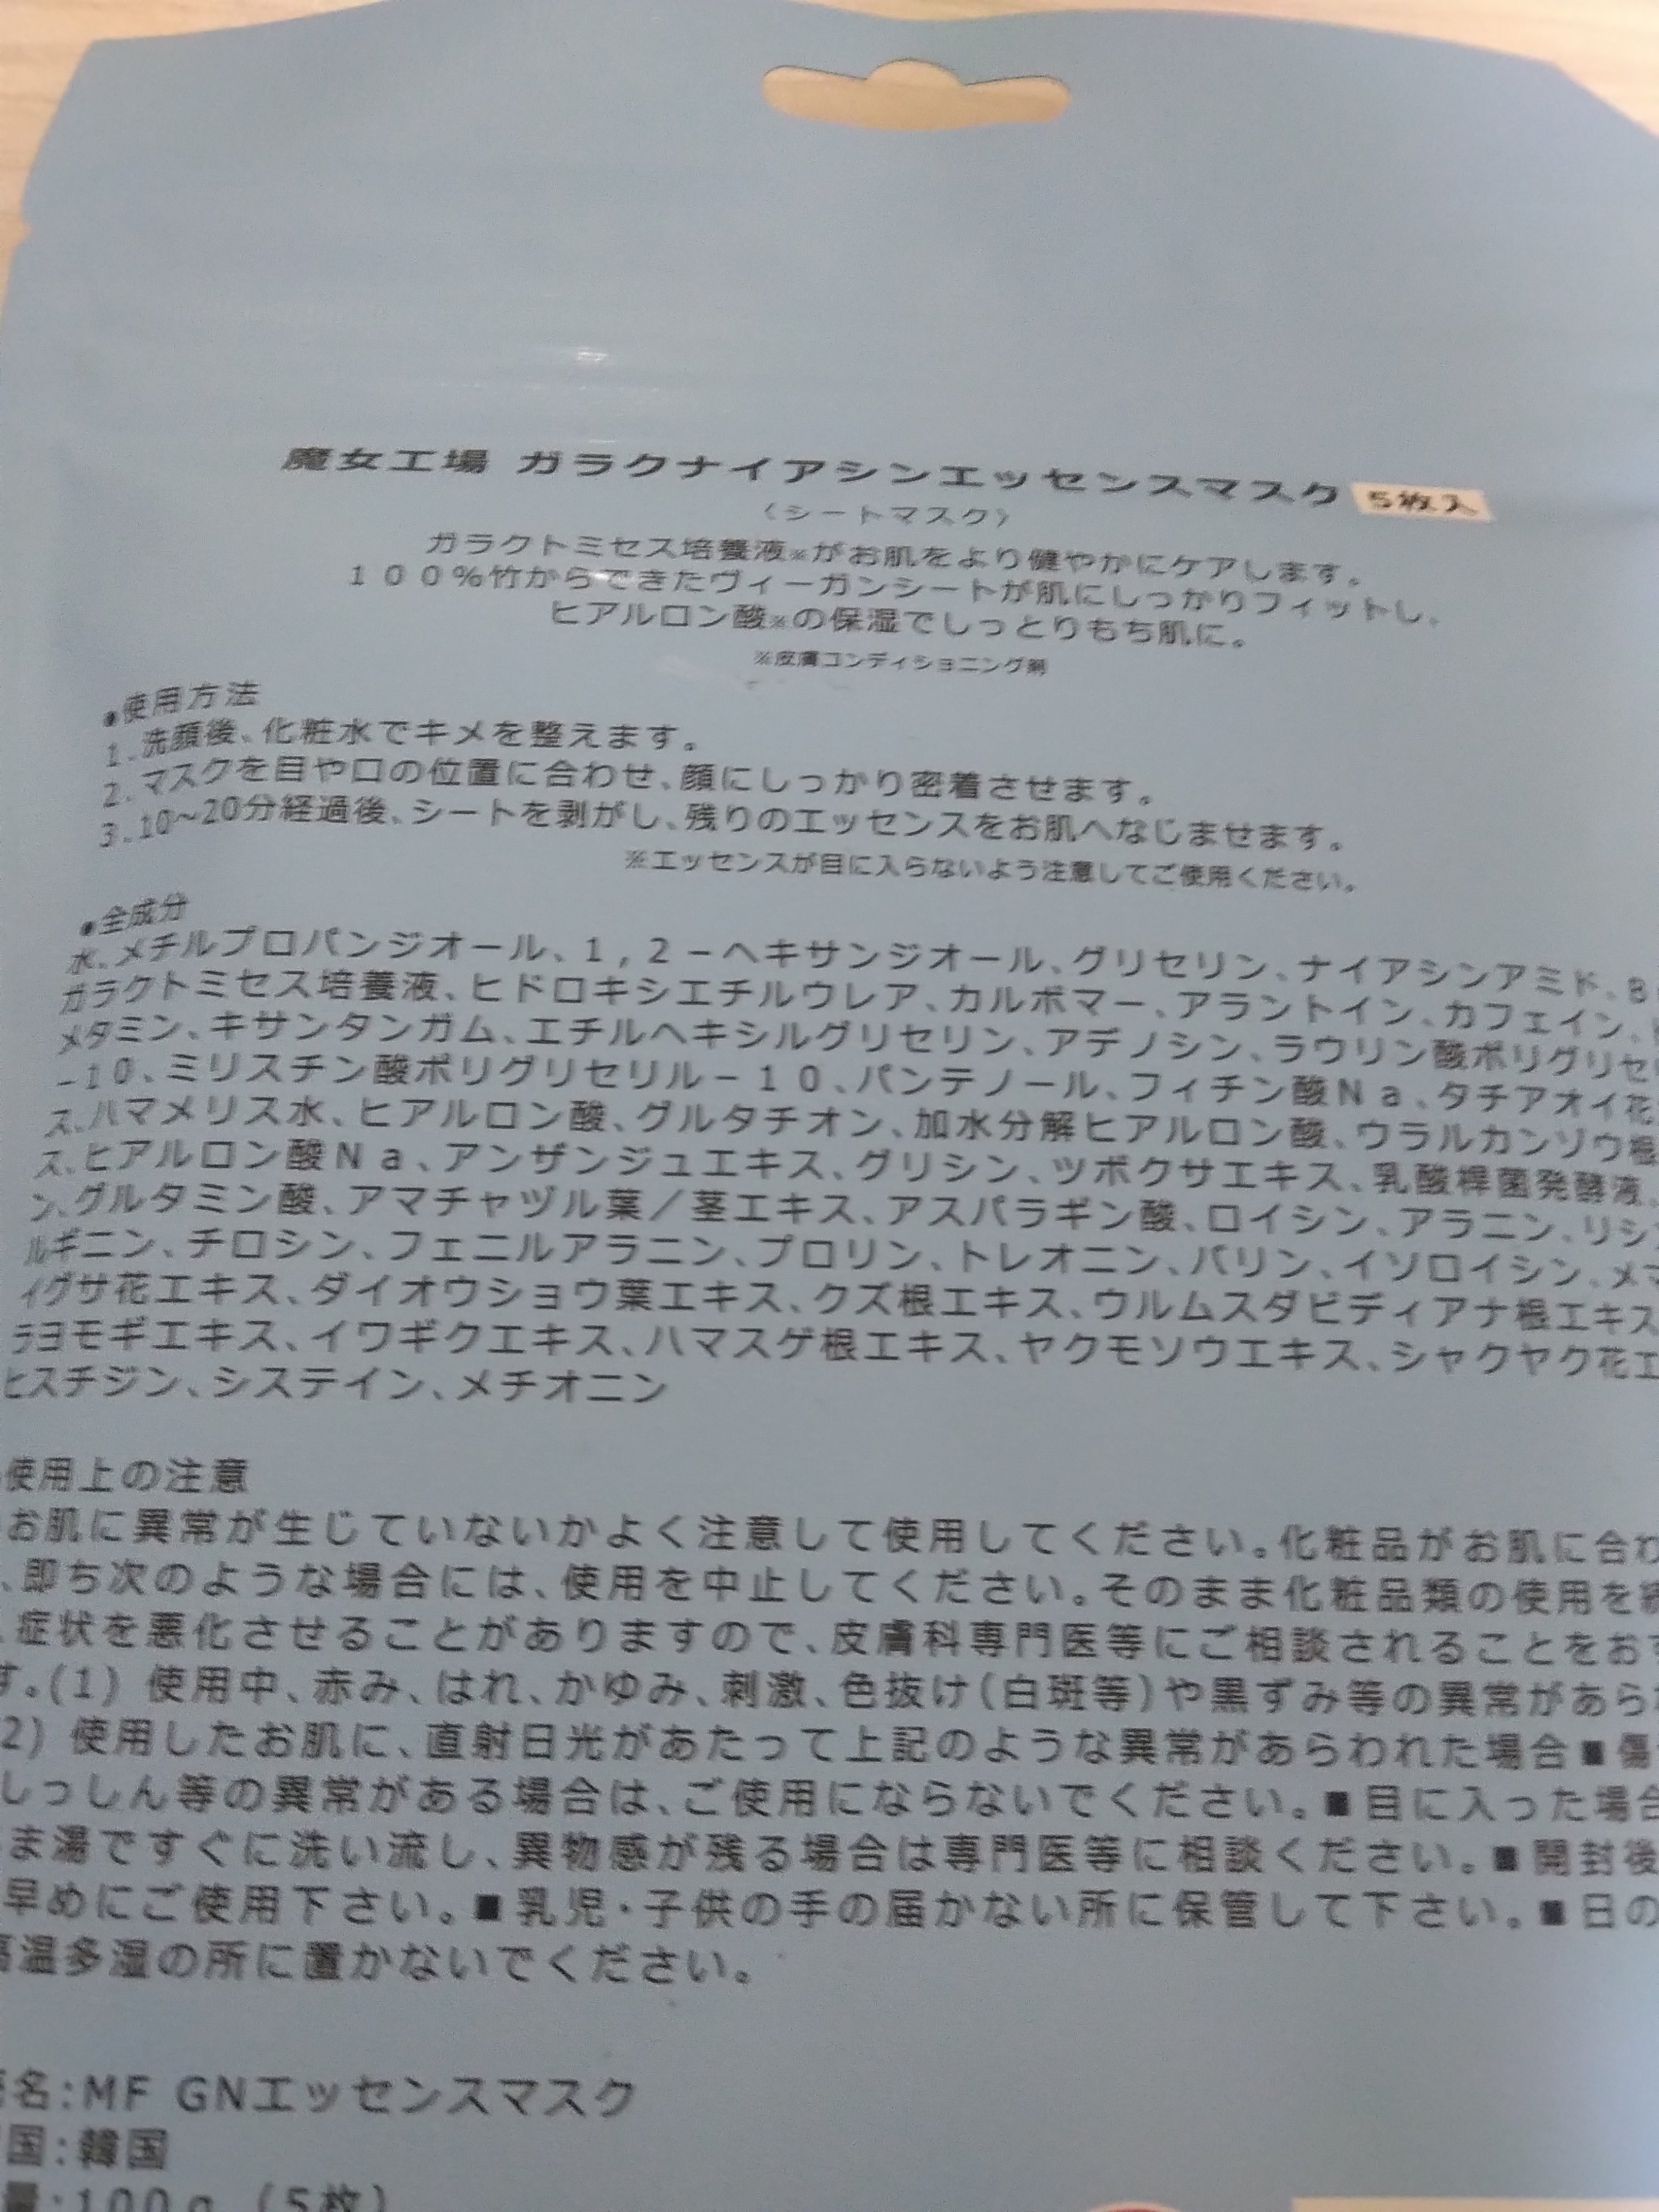 魔女工場 ガラクナイアシンエッセンスマスク 5枚入
〈シートマスク〉
ガラクトミセス培養液※がお肌をより健やかにケアします。
100%竹からできたヴィーガンシートが肌にしっかりフィットし、
ヒアルロン酸※の保湿でしっとりもち肌に。
※皮膚コンディショニング剤
●使用方法
1.洗顔後、化粧水でキメを整えます。
2.マスクを目や口の位置に合わせ、顔にしっかり密着させます。
3.10~20分経過後、シートを剥がし、残りのエッセンスをお肌へなじませます。
※エッセンスが目に入らないよう注意してご使用ください。
●全成分
水、メチルプロパンジオール、1,2-ヘキサンジオール、グリセリン、ナイアシンアミド、B
ガラクトミセス培養液、ヒドロキシエチルウレア、カルボマー、アラントイン、カフェイン、
メタミン、キサンタンガム、エチルヘキシルグリセリン、アデノシン、ラウリン酸ポリグリセリ
-10、ミリスチン酸ポリグリセリル-10、パンテノール、フィチン酸Na、タチアオイ花
ス、ハマメリス水、ヒアルロン酸、グルタチオン、加水分解ヒアルロン酸、ウラルカンゾウ根
ス、ヒアルロン酸Na、アンザンジュエキス、グリシン、ツボクサエキス、乳酸桿菌発酵液、
ン、グルタミン酸、アマチャヅル葉/茎エキス、アスパラギン酸、ロイシン、アラニン、リシン
ルギニン、チロシン、フェニルアラニン、プロリン、トレオニン、バリン、イソロイシン、メマ
イグサ花エキス、ダイオウショウ葉エキス、クズ根エキス、ウルムスダビディアナ根エキス
ラヨモギエキス、イワギクエキス、ハマスゲ根エキス、ヤクモソウエキス、シャクヤク花エ
ヒスチジン、システイン、メチオニン
使用上の注意
お肌に異常が生じていないかよく注意して使用してください。化粧品がお肌に合わ
、即ち次のような場合には、使用を中止してください。そのまま化粧品類の使用を続
、症状を悪化させることがありますので、皮膚科専門医等にご相談されることをおす
す。(1) 使用中、赤み、はれ、かゆみ、刺激、色抜け(白斑等)や黒ずみ等の異常があらわ
2) 使用したお肌に、直射日光があたって上記のような異常があらわれた場合■傷
しっしん等の異常がある場合は、ご使用にならないでください。■目に入った場合
ま湯ですぐに洗い流し、異物感が残る場合は専門医等に相談ください。■開封後
早めにご使用下さい。■乳児・子供の手の届かない所に保管して下さい。■日の
高温多湿の所に置かないでください。
名:MF GNエッセンスマスク
国:韓国
量:100g (5枚)